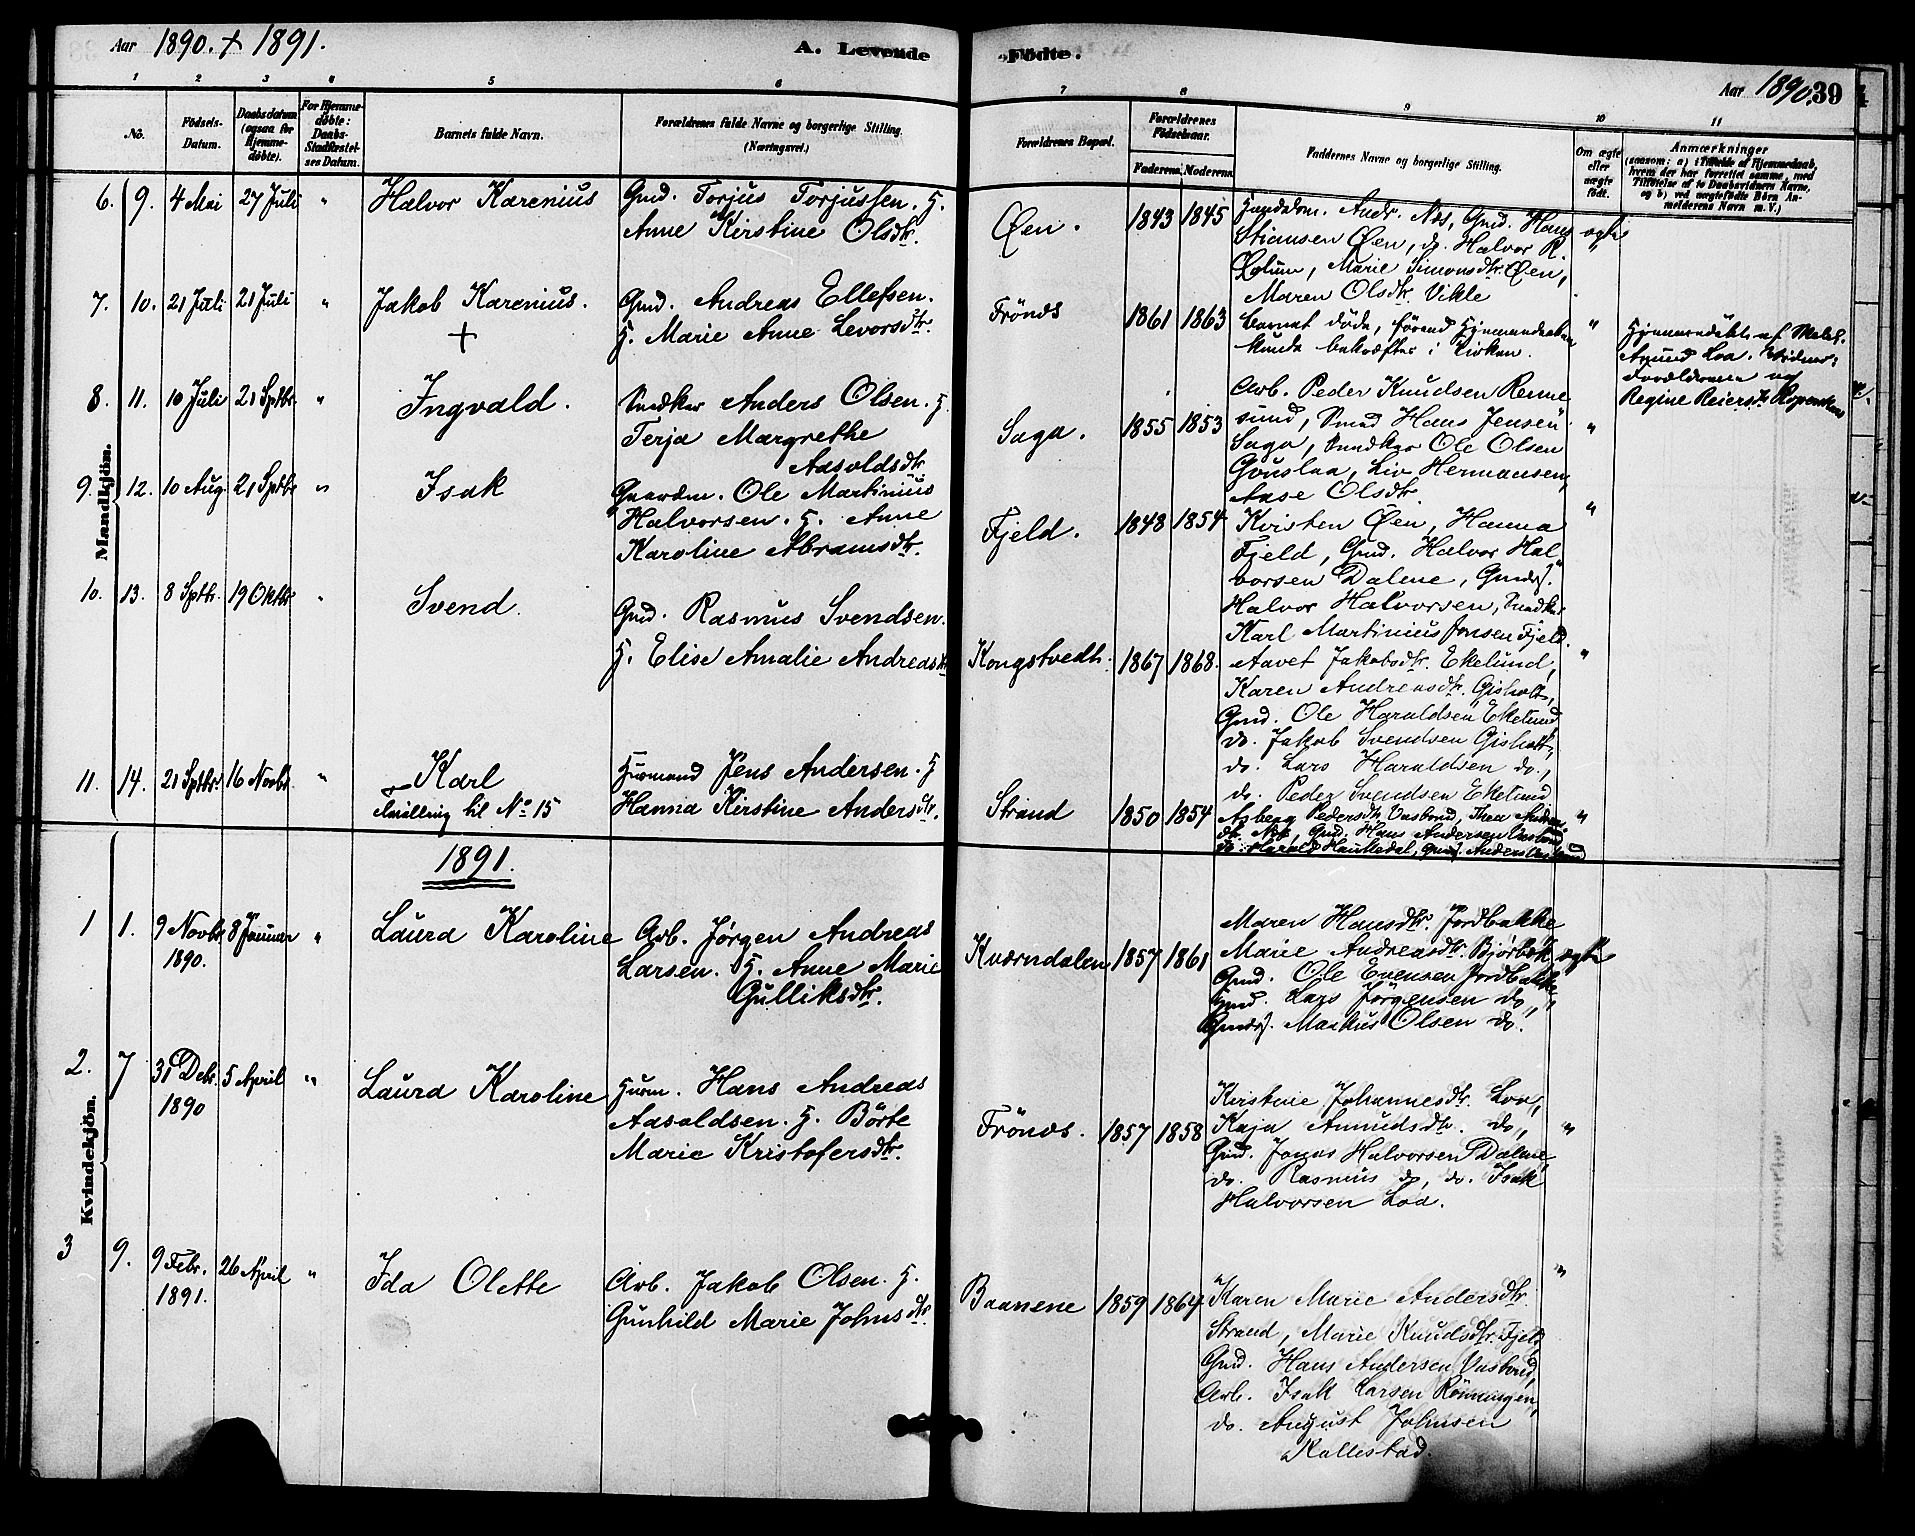 Aar 1890. + 1891.
A. Levende Födte.
Aar 1890. 39
1 2 3 4 5 6 7 8 9 10 11
No.
Födsels-Datum.
Daabsdatum (ogsaa for Hjemme-döbte).
For Hjemme-döbte: Daabs-Stadfæstel-ses Datum.
Barnets fulde Navn.
Forældrenes fulde Navne og borgerlige Stilling. (Næringsvei.)
Forældrenes Bopæl.
Forældrenes Födselsaar.
Faderens. Moderens.
Faddernes Navne og borgerlige Stilling.
Om ægte eller uægte født.
Anmærkninger
(saasom: a) i Tilfælde af Hjemmedaab,
hvem der har forrettet samme, med
Tilföielse af to Daabsvidners Navne,
og b) ved uægtefødte Börn An-
melderens Navn m. V.)
Mandkjön.
6. 9. 4 Mai 27 Juli " Halvor Karenius
Gmd. Torjus Torjussen. H.
Anne Kirstine Olsdtr.
Øen. 1843 1845
Andr. Næs, Gmd. Hans
Stiansen Øen, do. Halvor R.
Marie Simonsdtr. Øen,
Maren Olsdtr. Vikle
ægte
7. 10. 21 Juli 21 Juli " Jakob Karenius. +
Gmd. Andreas Ellefsen.
H. Marie Anne Levorsdtr.
Frönes 1861 1863
Barnet døde, førend Hjemmedaaben
kunde bekræftes i Kirken.
"
Hjemmedöbt af
Amund Loa. Vidner:
Forældrene og
Regine Reiersdtr.
8. 11. 10 Juli 21 Sptbr. " Ingvald.
Snedker Anders Olsen. H.
Terja Margrethe
Aasoldsdtr.
Saga. 1855 1853
Arb. Peder Knudsen Renne
sund, Smed Hans Jensen
Saga, Snedker Ole Olsen
Liv Hermansen,
Aase Olsdtr.
"
9. 12. 10 Aug. 21 Sptbr " Isak
Gaardm. Ole Martinius
Halvorsen. H. Anne
Karoline Abramsdtr.
Fjeld. 1848 1854
Kirsten Øen, Hanna
Fjeld, Gmd. Halvor Hal
vorsen Dalene, Gmdss.
Halvor Halvorsen, Snedker
Karl Martinius Jensen Fjeld.
"
10. 13. 8 Sptbr. 19 Oktbr " Svend.
Gmd. Rasmus Svendsen.
H. Elise Amalie Andreasdtr
Kongstvedt. 1867 1868.
Aavet Jakobsdtr. Ekelund,
Karen Andreasdtr. Gisholt,
Gmd. Ole Haraldsen Ekelund
do. Jakob Svendsen Gisholt,
do. Lars Haraldsen do.,
do. Peder Svendsen Ekelund
"
11. 14. 21 Sptbr. 16 Novbr. " Karl
tvilling til No 15
Husmand Jens Andersen. H
Hanna Kirstine Andersdtr.
Strand 1850 1854
Asberg Pedersdtr. Vasbond, Thea Andreas
dtr. Næs, Gmd. Hans Andersen Vasbond,
do. Harald Haukedal, Gmdss. Anders Vasbond
"
1891.
Kvindekjön.
1 1. 9 Novbr 1890. 8 Januar " Laura Karoline
Arb. Jørgen Andreas
Larsen. H. Anne Marie
Gulliksdtr.
Kværndalen 1857 1861
Maren Hansdtr. Jordbakke
Marie Andreasdtr. Bjørbæk,
Gmd. Ole Evensen Jordbakke,
Gmd. Lars Jørgensen do,
Gmdss. Markus Olsen do.
ægte
2. 7 31 Debr. 1890 5 April " Laura Karoline
Husm. Hans Andreas
Aasoldsen. H. Börte
Marie Kristofersdtr.
Frönes. 1857 1858
Kirstine Johannesdtr. Loa,
Kaja Amundsdtr. do,
Gmd. Jonas Halvorsen Dalene
do. Rasmus do, do. Isak
Halvorsen Loa.
"
3 9. 9 Febr. 1891. 26 April " Ida Olette
Arb. Jakob Olsen. H.
Gunhild Marie Johnsdtr.
Baanene 1859 1864
Karen Marie Andersdtr.
Strand, Marie Knudsdtr. Fjeld,
Gmd. Hans Andersen Vasbond,
Arb. Isak Larsen Rönningen,
do. August Johnsen
Kallestad.
"